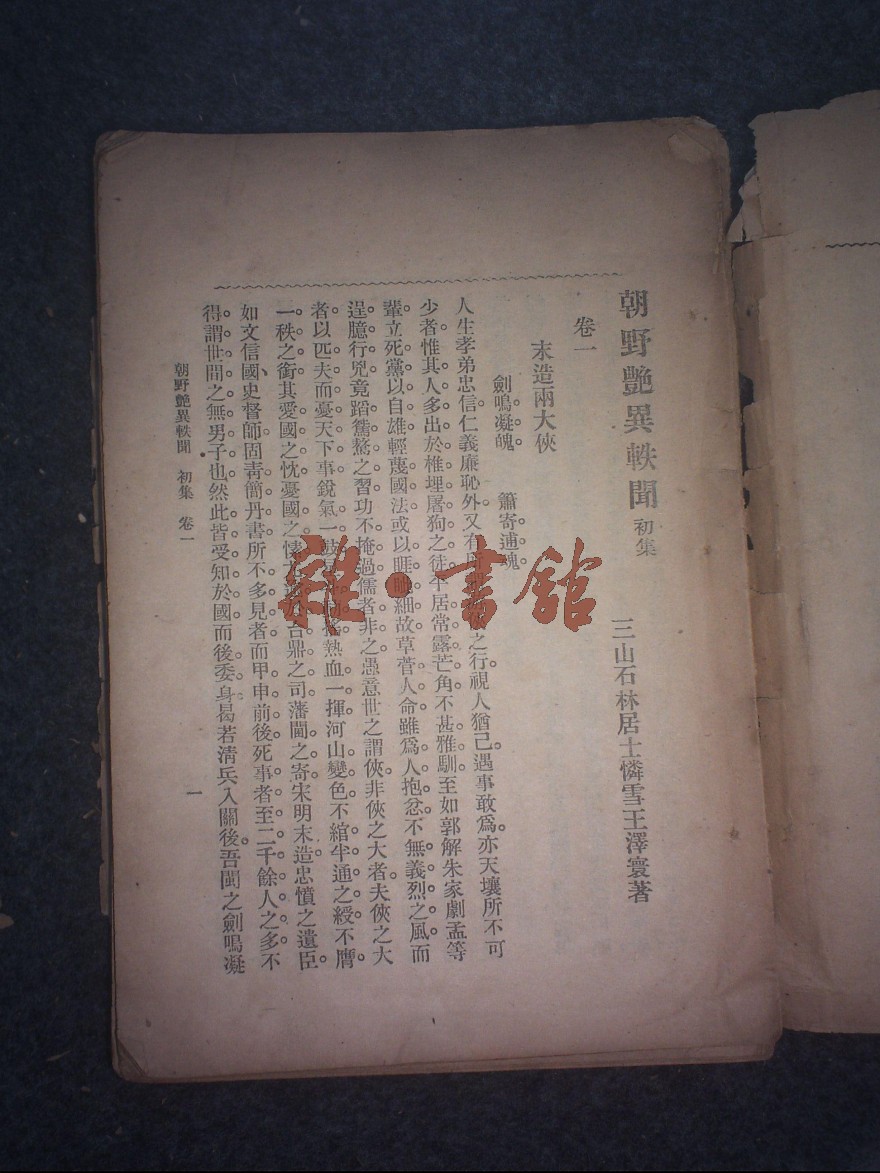 朝野艶異軼聞 初集 三山石林居士憐雪王澤寰著
卷一
末造兩大俠
劍鳴凝魄。 簫寄逋魂。
人生孝弟忠信仁義廉恥外又有 之行視人猶己遇事敢爲亦天壤所不可
少者惟其人多出於椎埋屠狗之徒平居常露芒角不甚雅馴至如郭解朱家劇孟等
輩立死黨以自雄輕蔑國法或以睚眦細故草菅人命雖爲人抱忿不無義烈之風而
逞臆行兇竟蹈鷙驁之習功不掩過儒者非之愚意世之謂俠非俠之大者夫俠之大
者以匹夫而憂天下事銳氣一 熱血一揮河山變色不綰半通之綬不膺
一秩之銜其愛國之忱憂國之悽尤 台鼎之司藩閫之寄宋明末造忠憤之遺臣
如文信國史督師固青簡丹書所不多見者而甲申前後死事者至二千餘人之多不
得謂世間之無男子也然此皆受知於國而後委身曷若淸兵入關後吾閩之劍鳴凝
朝野艶異軼聞 初集 卷一
一
雜·書館